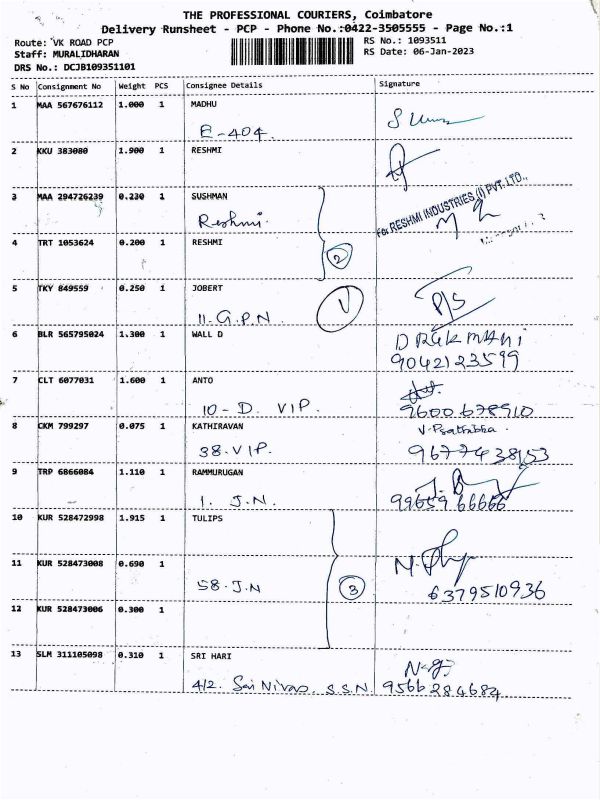 THE PROFESSIONAL COURIERS, Coimbatore
Delivery Runsheet - PCP - Phone No.:0422-3505555 - Page No.:1
Route: VK ROAD PCP
RS No.: 1093511
Staff: MURALIDHARAN
RS Date: 06-Jan-2023
DRS No.: DCJB109351101
S No Consignment No Weight PCS Consignee Details Signature
1 MAA 567676112 1.000 1 MADHU
E-404
2 KKU 383080 1.900 1 RESHMI
3 MAA 294726239 0.230 1 SUSHMAN
Reshmi.
For RESHMI INDUSTRIES (I) PVT. LTD.,
4 TRT 1053624 0.200 1 RESHMI
2
5 TKY 849559 0.250 1 JOBERT
11. G.P.N.
P/S
6 BLR 565795024 1.300 1 WALL D
9042123599
7 CLT 6077031 1.600 1 ANTO
10 - D. VIP.
9600678910
8 CKM 799297 0.075 1 KATHIRAVAN
38. VIP.
9677438153
9 TRP 6866084 1.110 1 RAMMURUGAN
1. J.N.
99659 66666
10 KUR 528472998 1.915 1 TULIPS
11 KUR 528473008 0.690 1
58. J.N
3
6379510936
12 KUR 528473006 0.300 1
13 SLM 311105098 0.310 1 SRI HARI
4/2. Sai Nivas. S.S.N. 9566284684